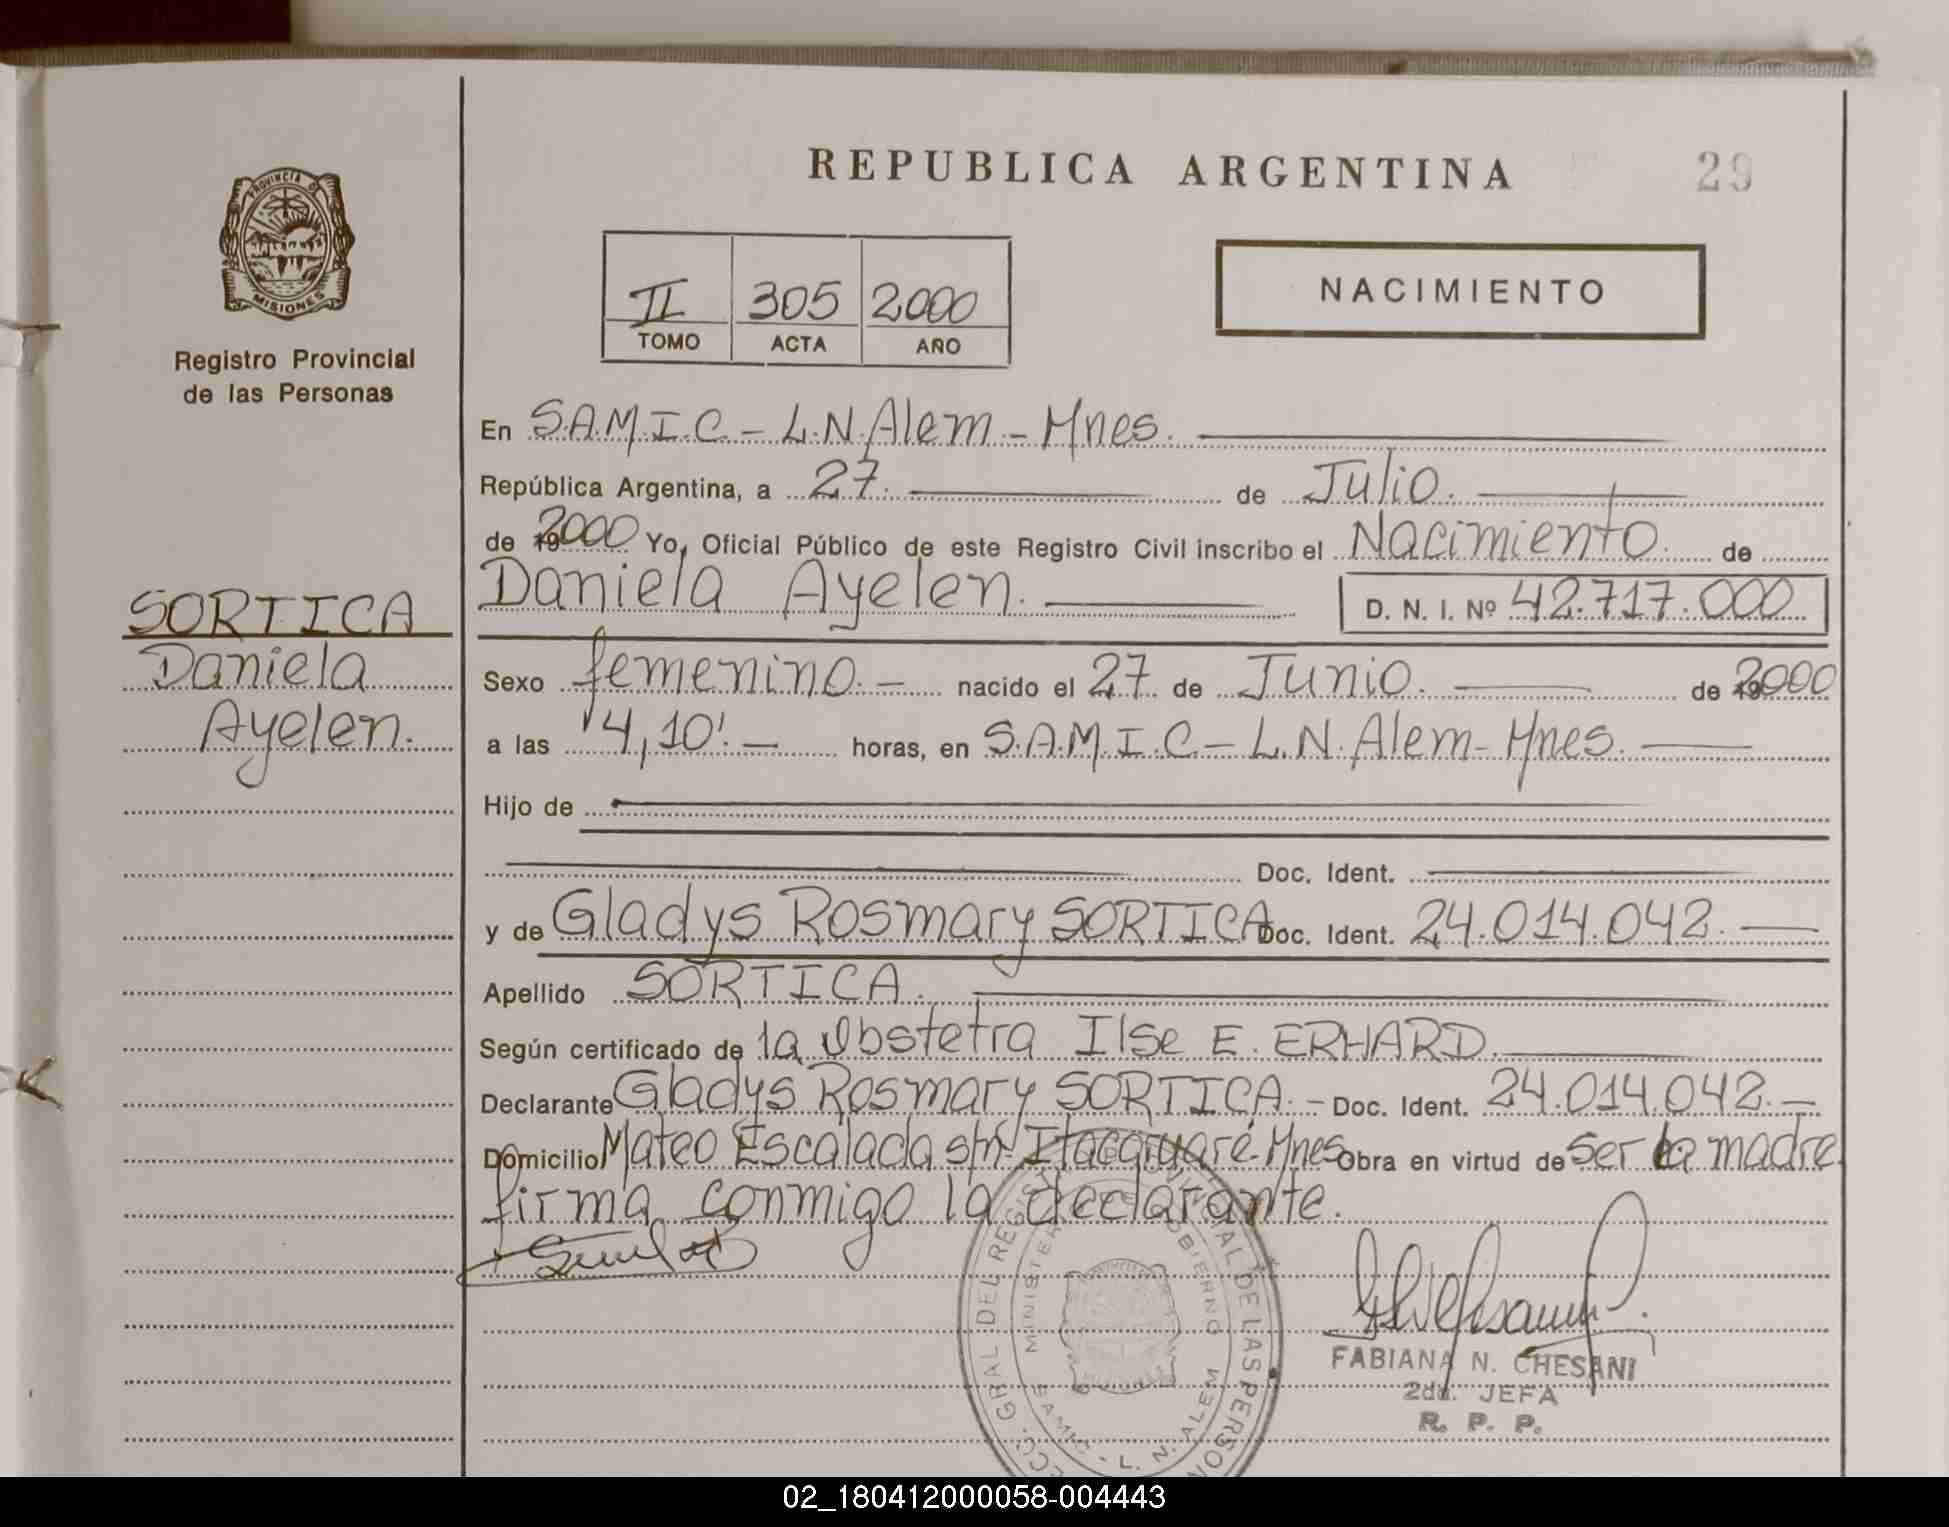 REPUBLICA ARGENTINA
29
PROVINCIA DE
MISIONES
Registro Provincial
de las Personas
II 305 2000
TOMO ACTA AÑO
NACIMIENTO
En S.A.M.I.C - L.N.Alem - Mnes.
República Argentina, a 27. de Julio.
de 2000 Yo, Oficial Público de este Registro Civil inscribo el Nacimiento. de
Daniela Ayelen. D. N. I. Nº 42.717.000
SORTICA
Daniela
Ayelen.
Sexo femenino. - nacido el 27 de Junio. de 2000
a las 14,10'. - horas, en S.A.M.I.C - L.N. Alem - Mnes.
Hijo de
Doc. Ident.
y de Gladys Rosmary SORTICA Doc. Ident. 24.014.042. -
Apellido SORTICA.
Según certificado de la Obstetra Ilse E. ERHARD.
Declarante Gladys Rosmary SORTICA. - Doc. Ident. 24.014.042. -
Domicilio Mateo Escalada s/nº Itacaruaré. Mnes Obra en virtud de ser la madre
firma conmigo la declarante.
GRAL DEL REGISTRO PROVINCIAL DE LAS PERSON
MINISTERIO DE GOBIERNO
SAMIC - L. N. ALEM
FABIANA N. CHESANI
2da. JEFA
R. P. P.
02_180412000058-004443